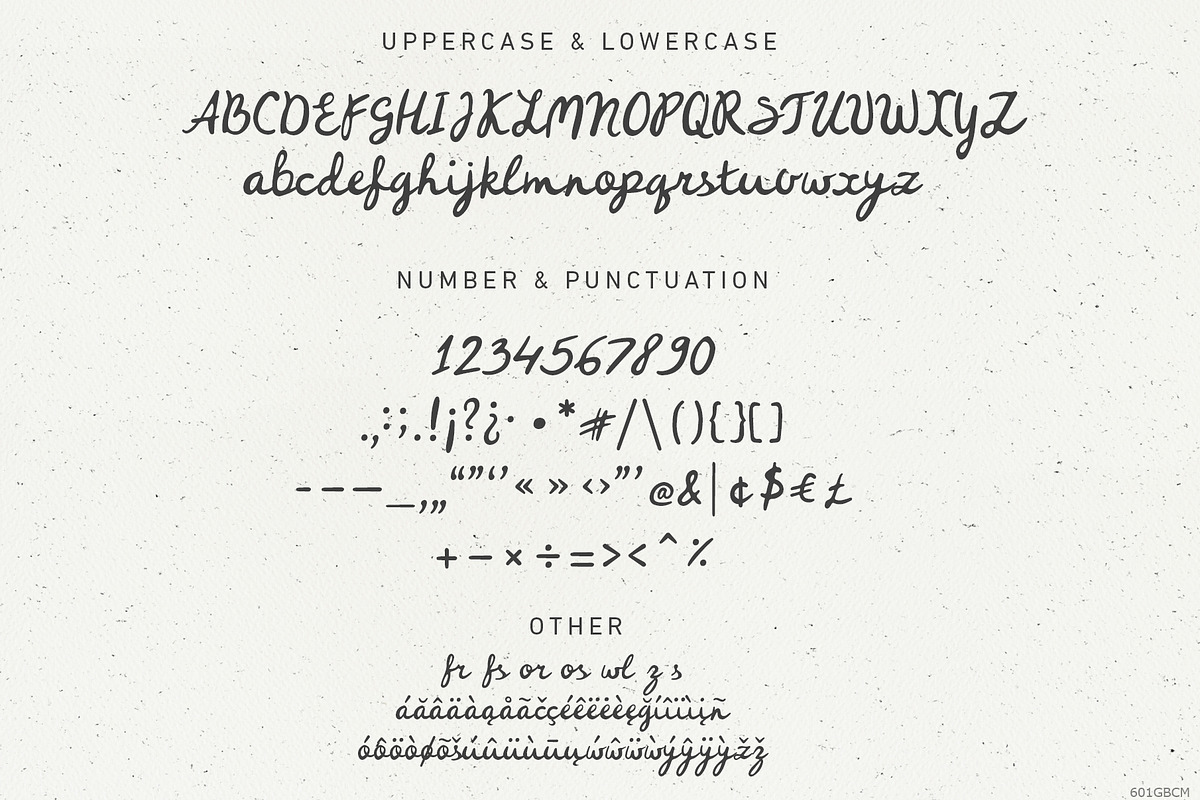 UPPERCASE & LOWERCASE
ABCDEFGHIJKLMNOPQRSTUVWXYZ
abcdefghijklmnopqrstuvwxyz
NUMBER & PUNCTUATION
1234567890
.,:;.!¡?¿· •*#/\(){}[]
-–—_‚„“”‘’«»‹›"'@&|¢$€£
+−×÷=><^%
OTHER
fr fs or os wl z s
áăâäàąåãčçéêëëèęğíîïìįñ
óôöòøõšúûüùūųẃŵẅẁýŷÿỳžż
601GBCM